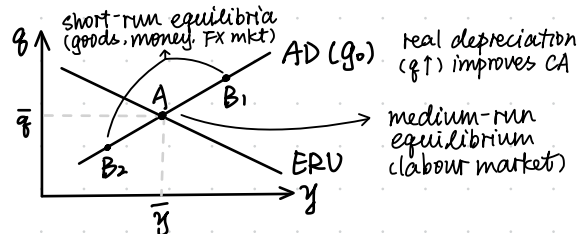 short-run equilibria
(goods, money, FX mkt)
q
AD (g₀)
real depreciation
(q↑) improves CA
A
B₁
q̅
medium-run
equilibrium
(labour market)
B₂
ERU
y
y̅